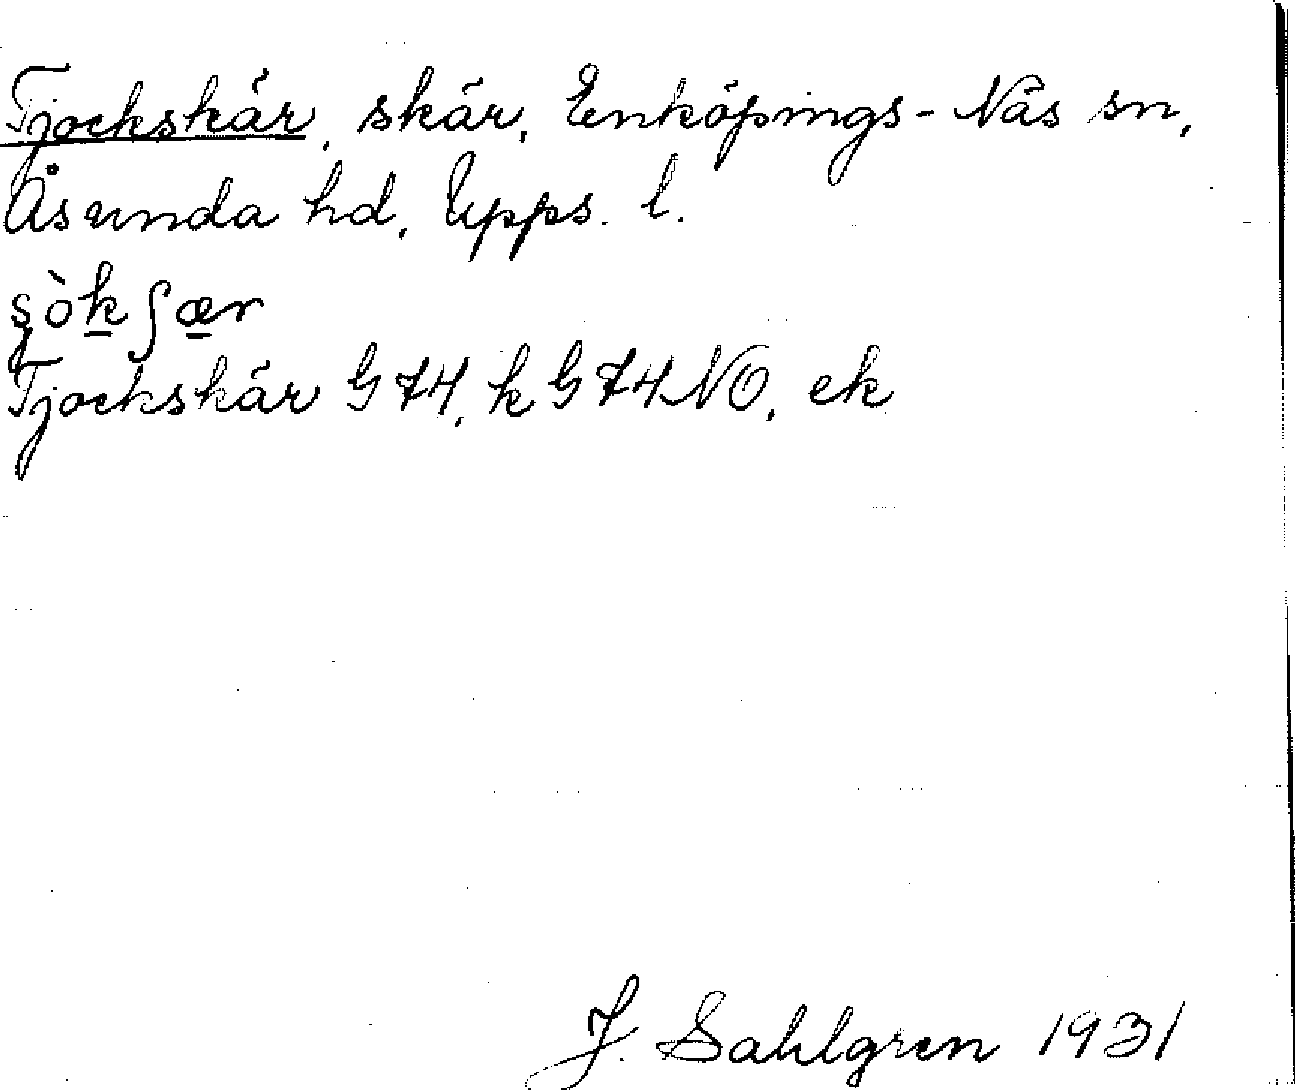 Tjockskär, skär, Enköpings-Näs sn,
Åsunda hd, Upps. l.
Tjockskär G 74, k G 74 NO, ek
J. Sahlgren 1931